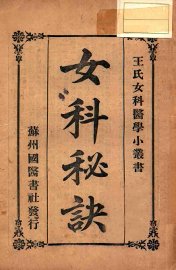 王氏女科醫學小叢書
女科秘訣
蘇州國醫書社發行